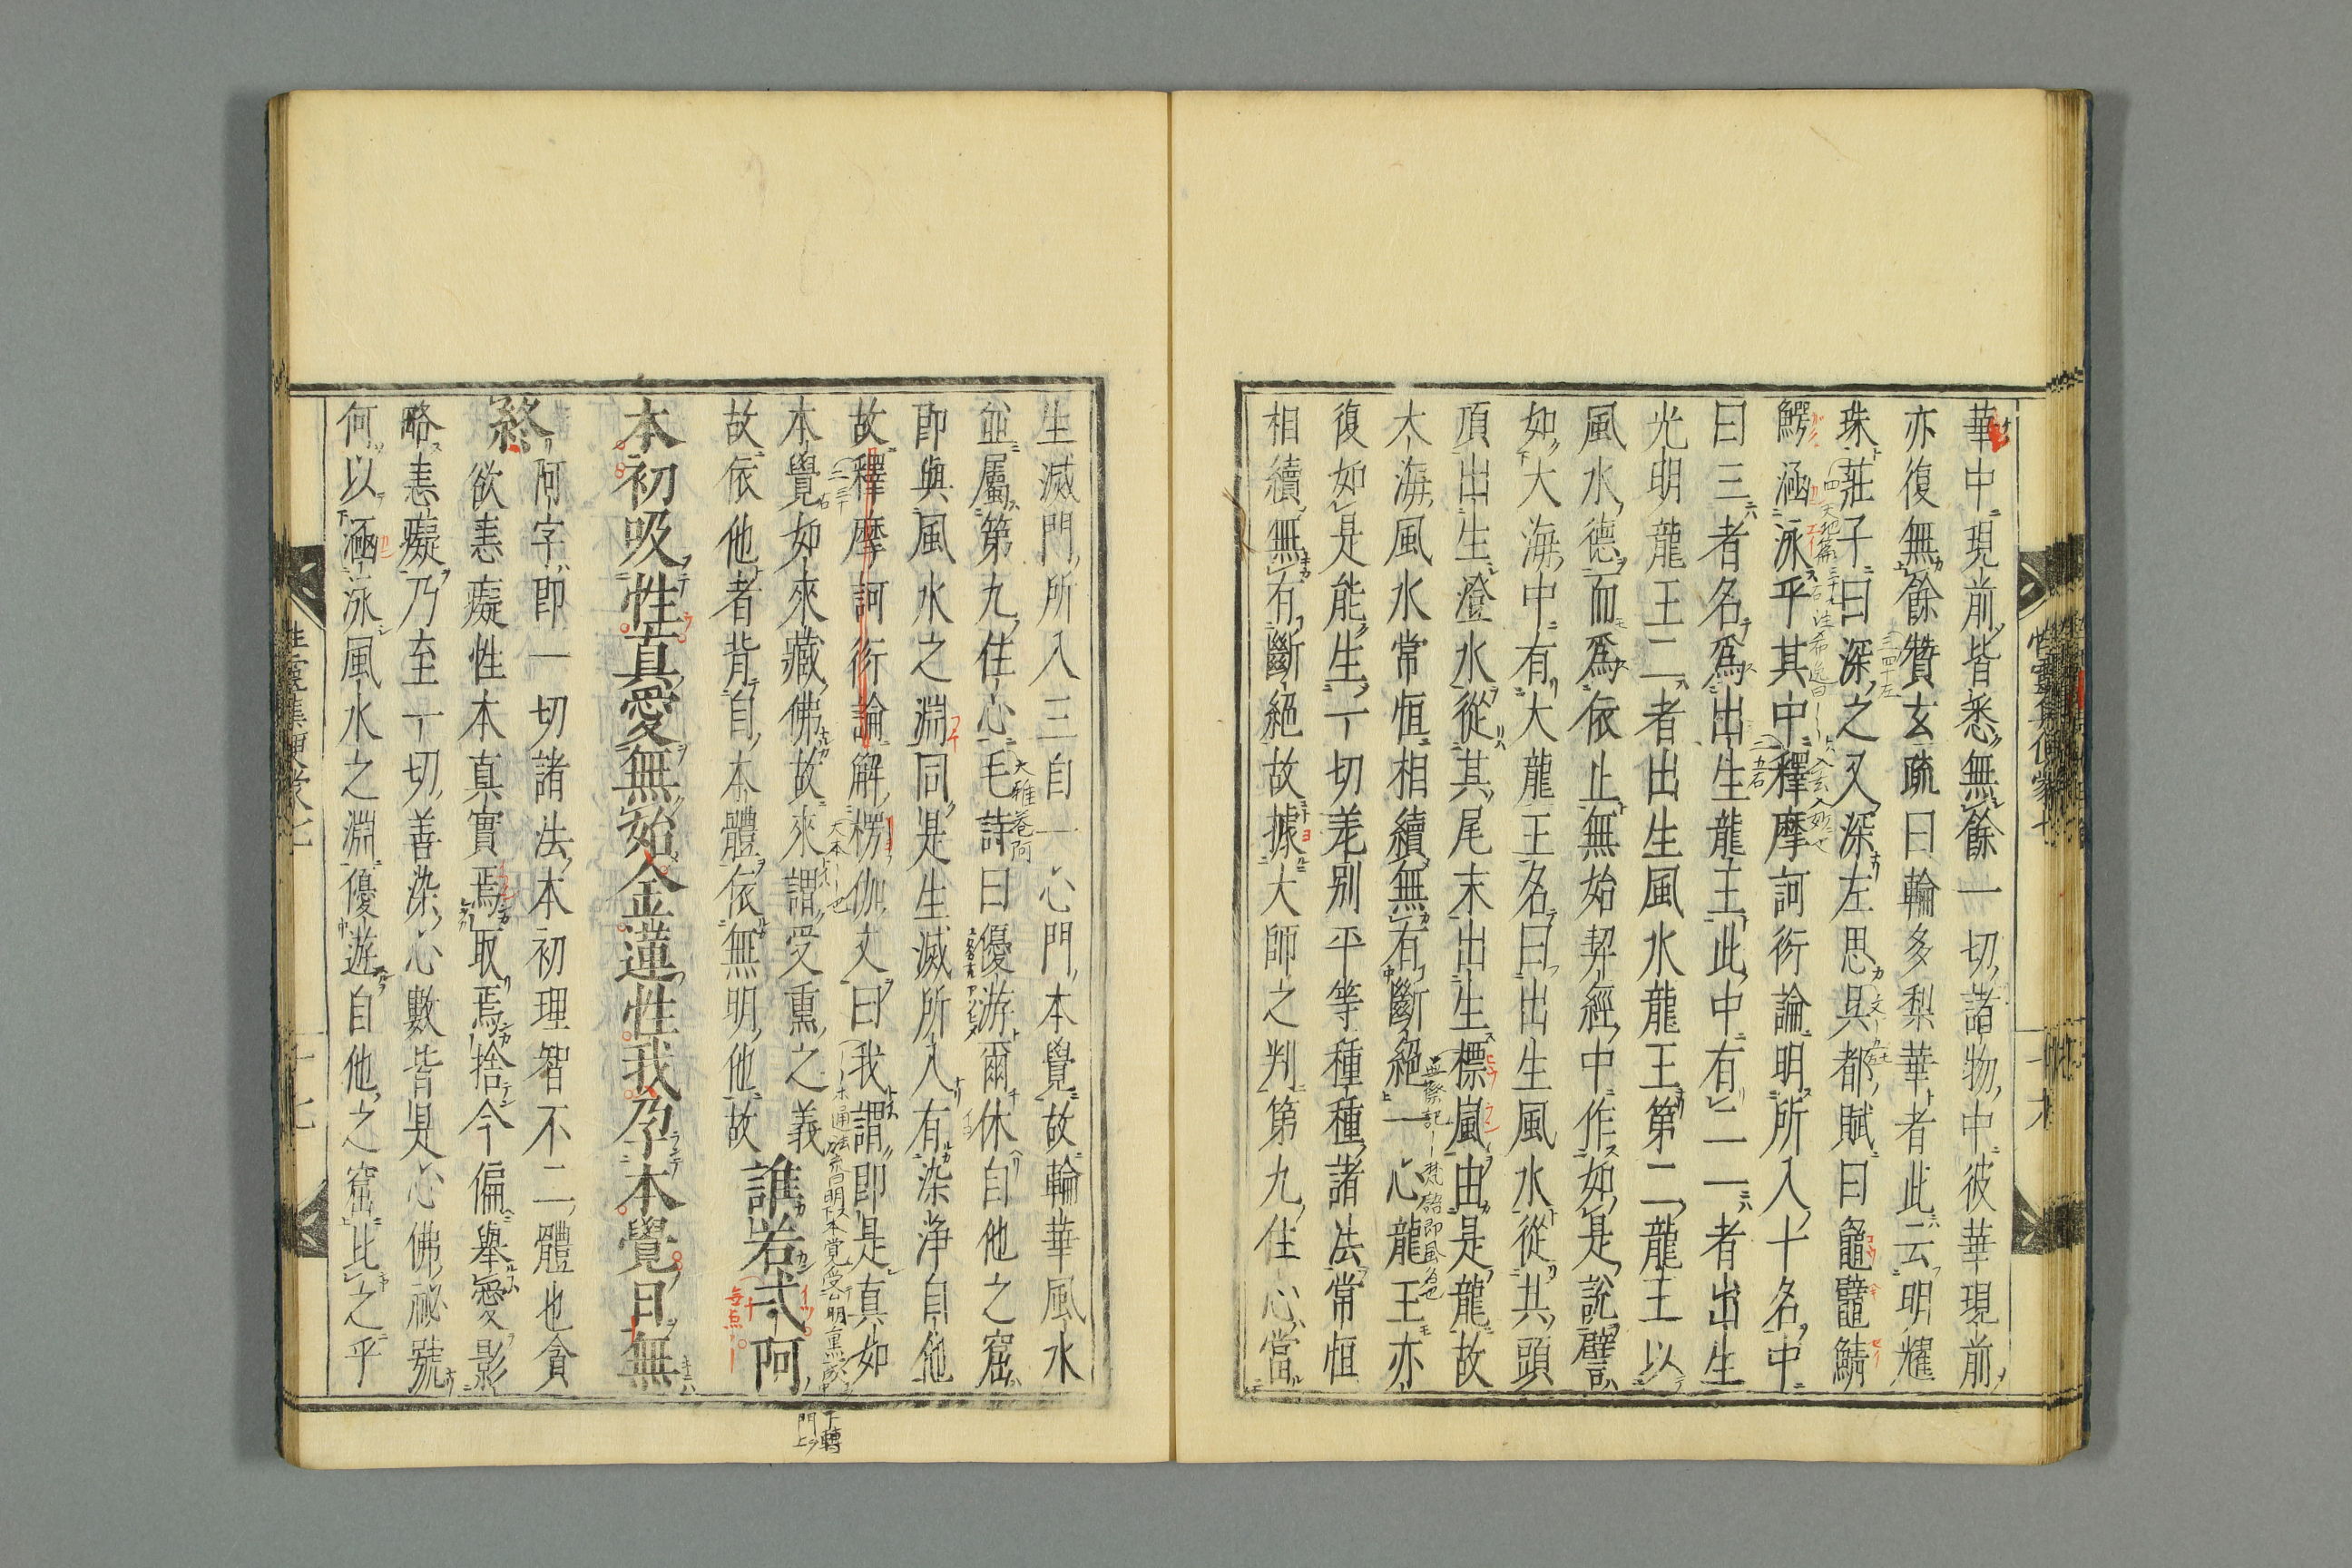 華中現前皆悉無餘一切諸物中彼華現前
亦復無餘贊玄疏曰輪多梨華者此云明耀
珠莊子曰深之又深左思吳都賦曰龜鼊鯖
鰐涵泳乎其中釋摩訶衍論明所入十名中
曰三者名爲出生龍王此中有二一者出生
光明龍王二者出生風水龍王第二龍王以
風水德而爲依止無始契經中作如是說譬
如大海中有大龍王名曰出生風水從其頭
頂出生澄水從其尾末出生標嵐由是龍故
大海風水常恒相續無有斷絕一心龍王亦
復如是能生一切差別平等種種諸法常恒
相續無有斷絕故據大師之判第九住心當
生滅門所入三自一心門本覺故輪華風水
並屬第九住心毛詩曰優游爾休自他之窟
即與風水之淵同是生滅所入有染淨自他
故釋摩訶衍論解楞伽文曰我謂即是真如
本覺如來藏佛故來謂受熏之義
故依他者背自本體依無明他故 誰若弍阿
本初吸性真愛無始金蓮性我孕本覺日無
終 阿字即一切諸法本初理智不二體也貪
欲恚癡性本真實焉取焉捨今偏舉愛影
略恚癡乃至一切善染心數皆是心佛祕號
何以涵泳風水之淵優遊自他之窟此之乎
下轉
門上